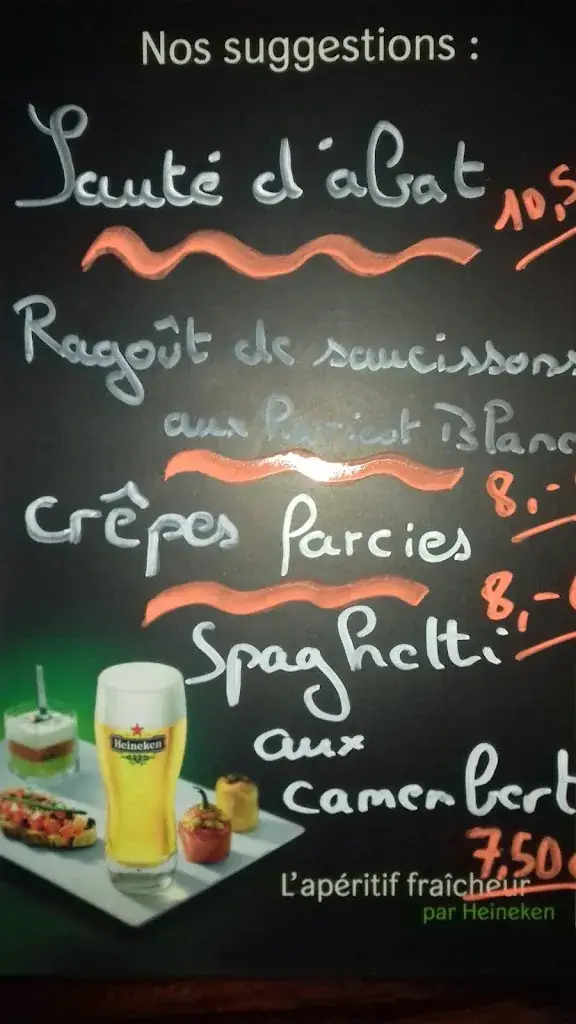 Nos suggestions :
Sauté d'abat
10,5
Ragoût de saucissons
aux haricot Blanc
8,-
Crêpes farcies
8,-€
Spaghetti
aux
camembert
7,50€
Heineken
L'apéritif fraîcheur
par Heineken